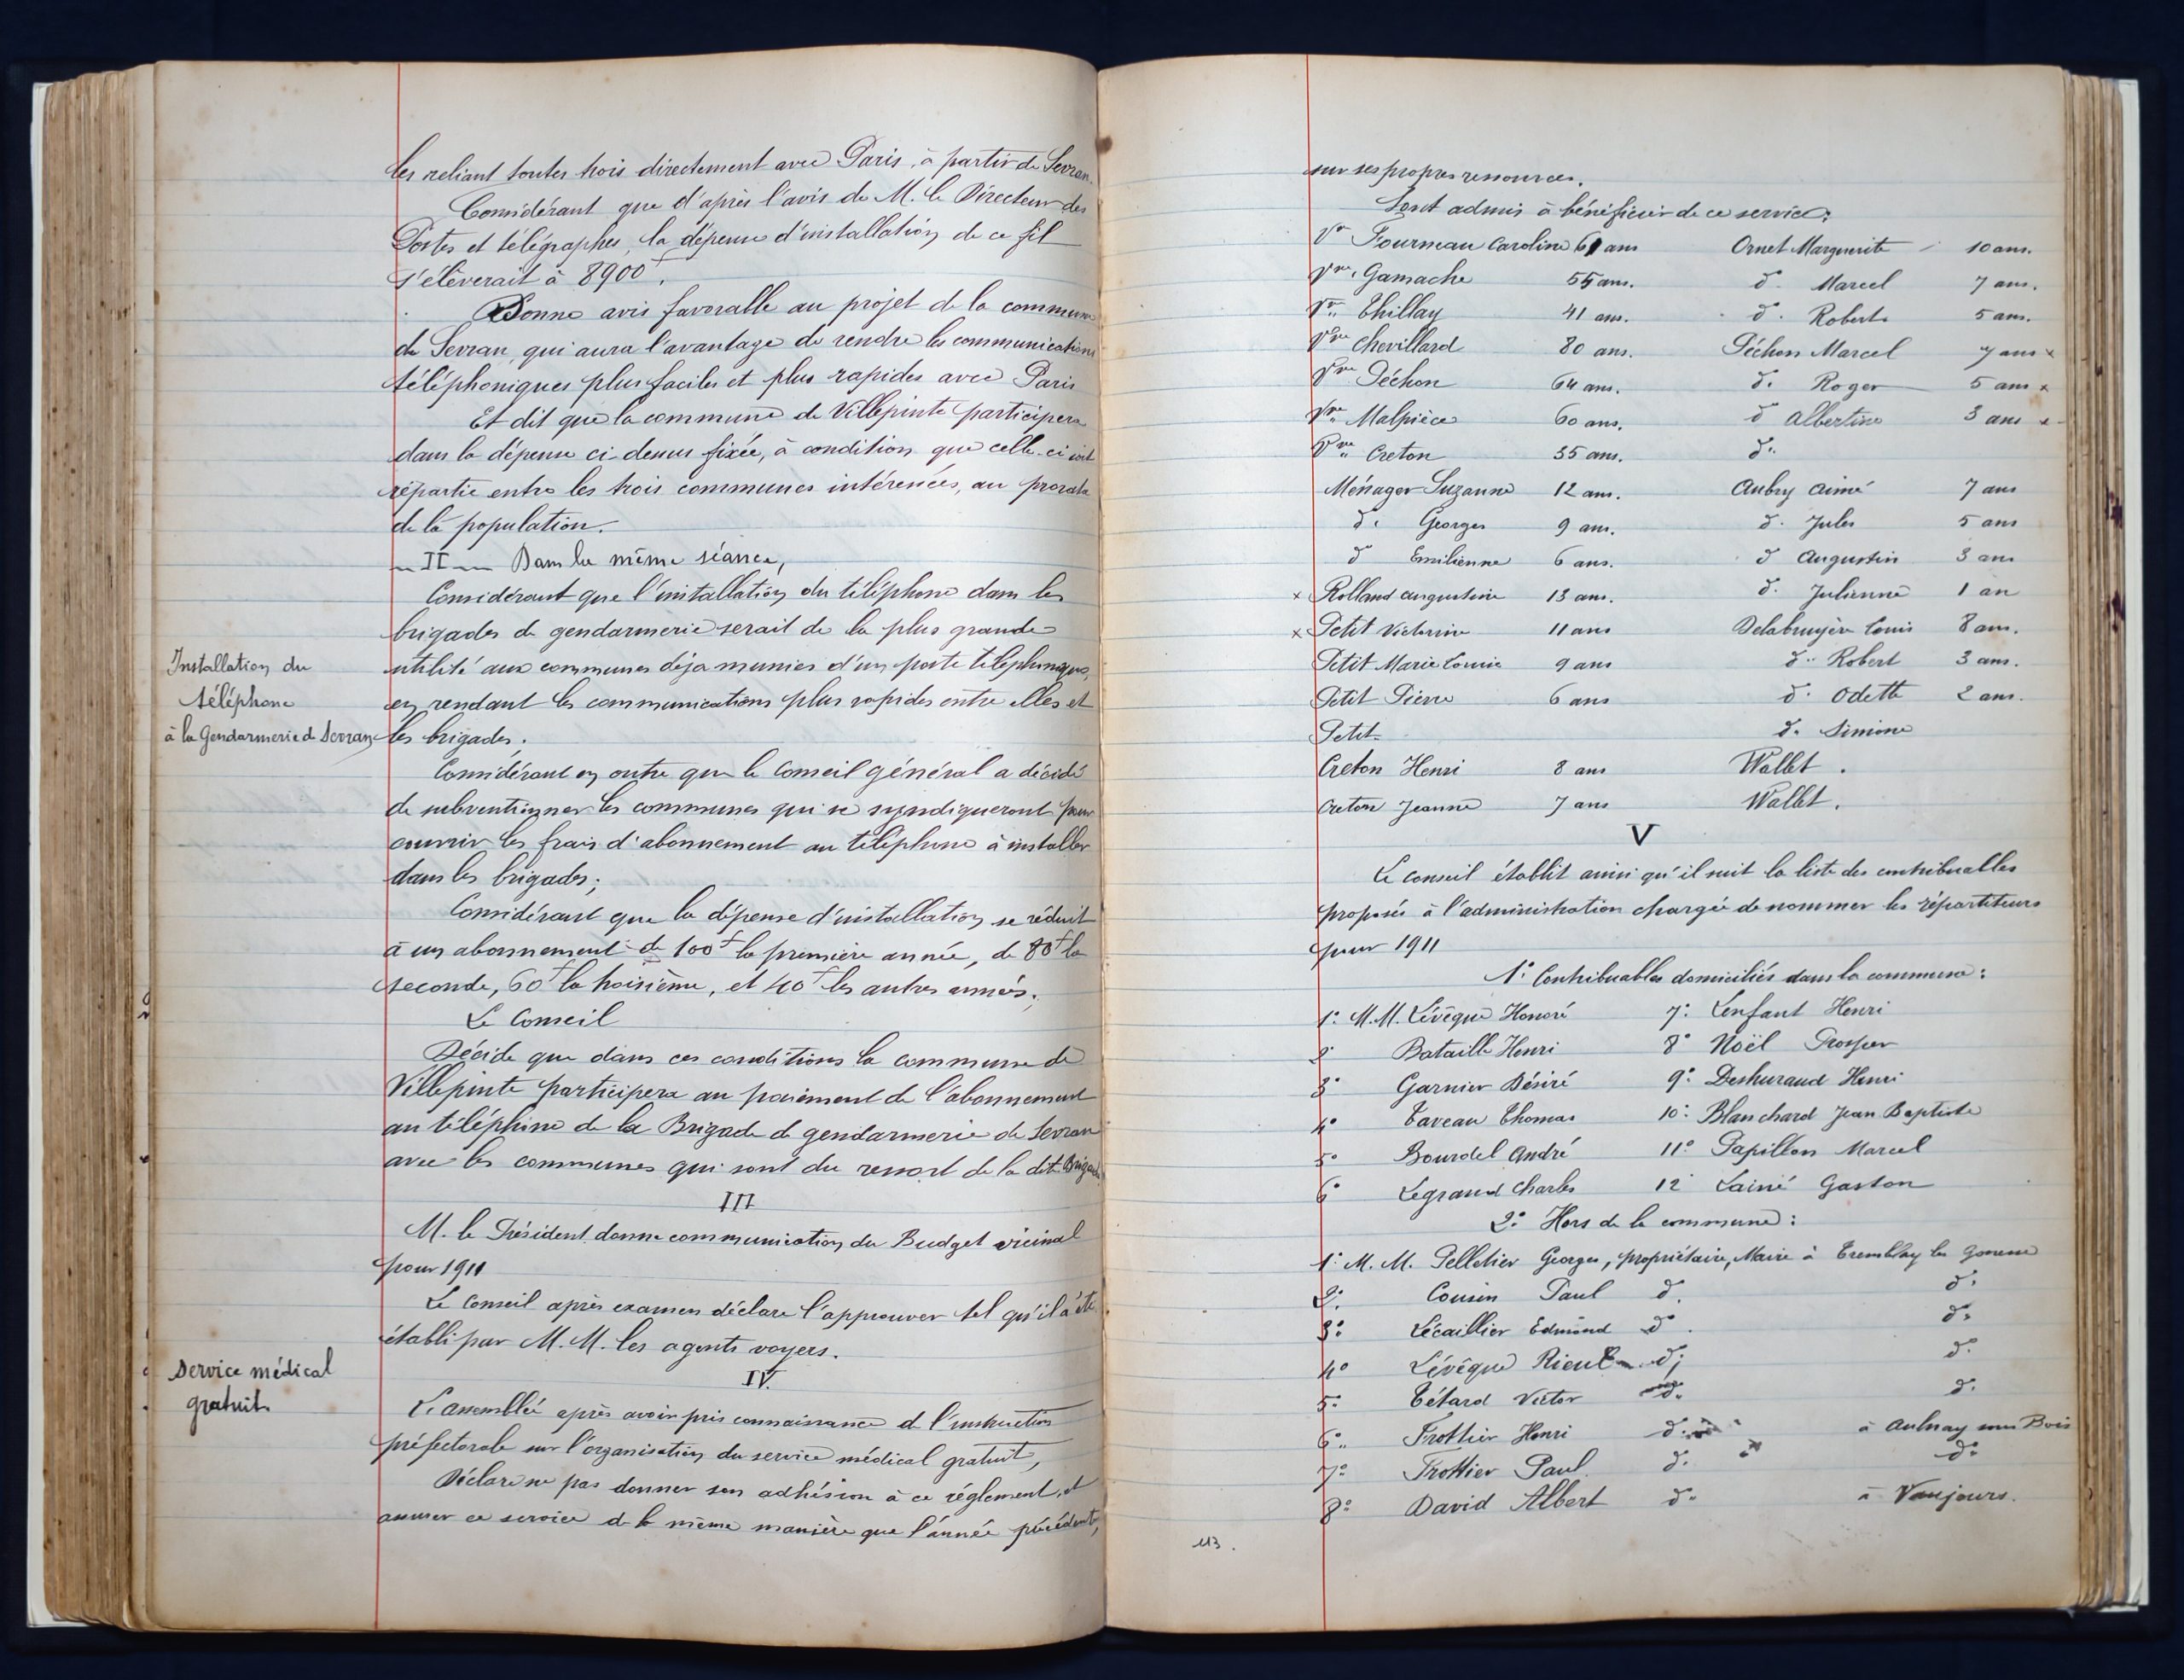 les reliant toutes trois directement avec Paris, à partir de Sevran.
Considérant que d'après l'avis de M. le Directeur des
Postes et télégraphes, la dépense d'installation de ce fil
s'élèverait à 8900 f.
Donne avis favorable au projet de la commune
de Sevran, qui aura l'avantage de rendre les communications
téléphoniques plus faciles et plus rapides avec Paris
Et dit que la commune de Villepinte participera
dans la dépense ci-dessus fixée, à condition que celle-ci soit
répartie entre les trois communes intéressées, au prorata
de la population.
II Dans la même séance,
Considérant que l'installation du téléphone dans les
brigades de gendarmerie serait de la plus grande
Installation du
téléphone
à la Gendarmerie de Sevran
utilité aux communes déjà munies d'un poste téléphonique,
en rendant les communications plus rapides entre elles et
les brigades.
Considérant en outre que le Conseil général a décidé
de subventionner les communes qui se syndiqueront pour
couvrir les frais d'abonnement au téléphone à installer
dans les brigades;
Considérant que la dépense d'installation se réduit
à un abonnement de 100 f la première année, de 80 f la
seconde, 60 f la troisième, et 40 f les autres années;
Le Conseil
Décide que dans ces conditions la commune de
Villepinte participera au paiement de l'abonnement
au téléphone de la Brigade de gendarmerie de Sevran
avec les communes qui sont du ressort de la dite Brigade.
III
M. le Président donne communication du Budget vicinal
pour 1911
Le Conseil après examen déclare l'approuver tel qu'il a été
établi par M.M. les agents voyers.
IV.
Service médical
gratuit
L'assemblée après avoir pris connaissance de l'instruction
préfectorale sur l'organisation du service médical gratuit,
Déclare ne pas donner son adhésion à ce réglement, et
assurer ce service de la même manière que l'année précédente,
sur ses propres ressources.
Sont admis à bénéficier de ce service:
Ve Fourneau Caroline 61 ans Ornet Marguerite 10 ans.
Vve Gamache 55 ans. d° Marcel 7 ans.
Vve Thillay 41 ans. d° Robert 5 ans.
Vve Chevillard 80 ans. Péchon Marcel 7 ans x
Vve Péchon 64 ans. d° Roger 5 ans x
Vve Malpièce 60 ans. d° Albertine 3 ans x
Vve Creton 35 ans. d°
Ménager Suzanne 12 ans. Aubry Aimé 7 ans
d° Georges 9 ans. d° Jules 5 ans
d° Emilienne 6 ans. d° Augustin 3 ans
x Rolland Augustine 13 ans. d° Julienne 1 an
x Petit Victorine 11 ans Delabruyère Louis 8 ans.
Petit Marie Louise 9 ans d° Robert 3 ans.
Petit Pierre 6 ans d° Odette 2 ans.
Petit d° Simone
Creton Henri 8 ans Wallet.
Creton Jeanne 7 ans Wallet.
V
Le conseil établit ainsi qu'il suit la liste des contribuables
proposés à l'administration chargée de nommer les répartiteurs
pour 1911
1° Contribuables domiciliés dans la commune:
1° M.M. Lévêque Honoré 7° Lenfant Henri
2° Bataille Henri 8° Noël Prosper
3° Garnier Désiré 9° Henri
4° Taveau Thomas 10° Blanchard Jean Baptiste
5° Bourdel André 11° Papillon Marcel
6° Legrand Charles 12° Lainé Gaston
2° Hors de la commune:
1° M. M. Pelletier Georges, propriétaire, Maire à Tremblay les Gonesse
2° Cousin Paul d° d°
3° Lécaillier Edmond d° d°
4° Lévêque Rieul d° d°
5° Tétard Victor d° d°
6° Trottier Henri d° à Aulnay sous Bois
7° Trottier Paul d° d°
8° David Albert d° à Vaujours.
113.